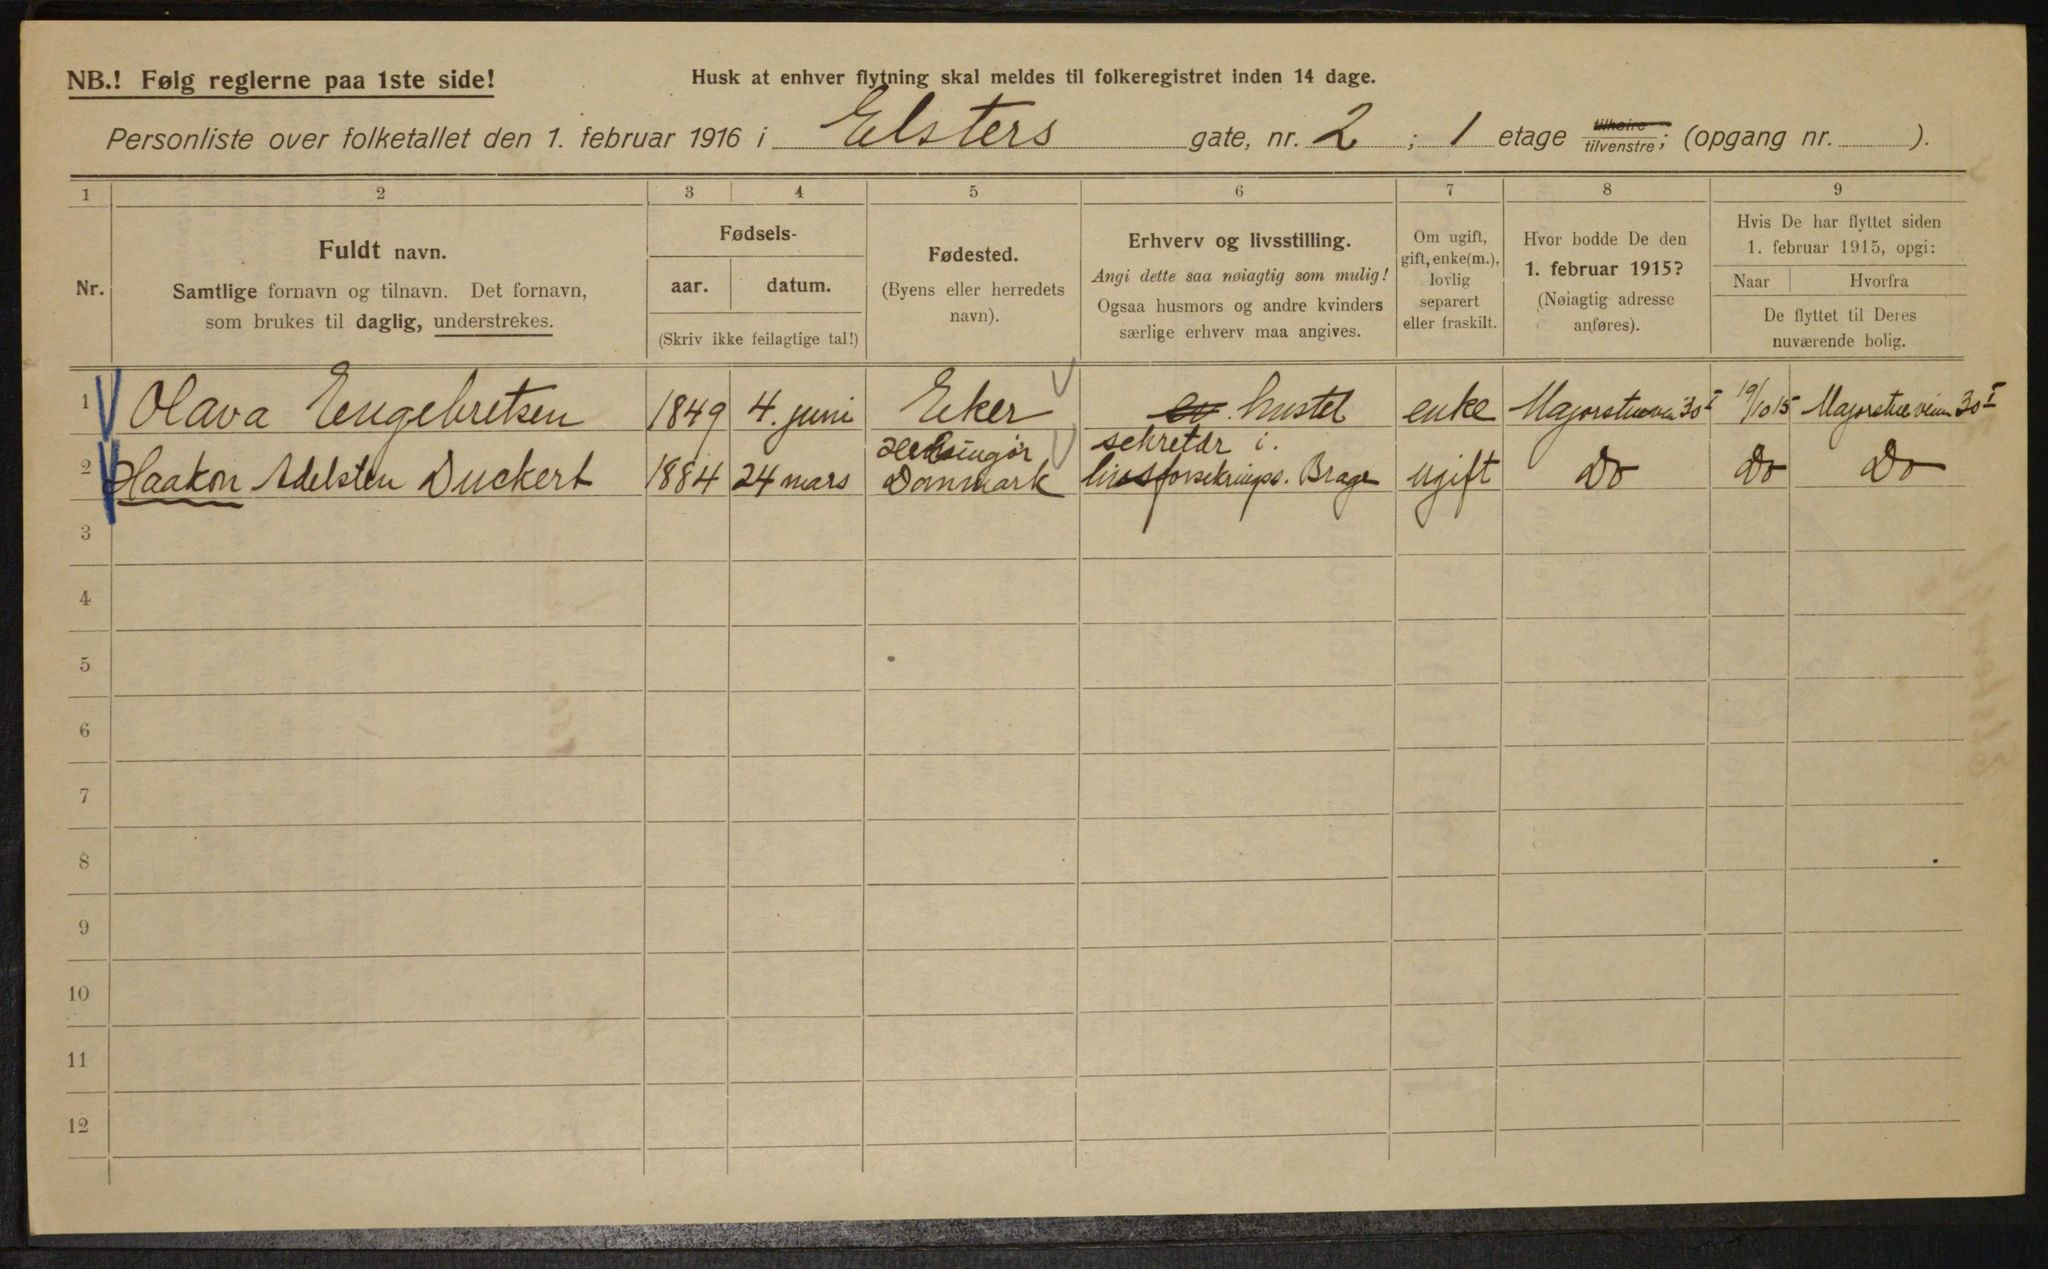 NB.! Følg reglerne paa 1ste side!
Husk at enhver flytning skal meldes til folkeregistret inden 14 dage.
Personliste over folketallet den 1. februar 1916 i Elsters gate, nr. 2 ; 1 etage tilhøire tilvenstre; (opgang nr. ).
1 2 3 4 5 6 7 8 9
Nr.
Fuldt navn.
Samtlige fornavn og tilnavn. Det fornavn,
som brukes til daglig, understrekes.
Fødsels-
aar. datum.
(Skriv ikke feilagtige tal!)
Fødested.
(Byens eller herredets
navn).
Erhverv og livsstilling.
Angi dette saa nøiagtig som mulig!
Ogsaa husmors og andre kvinders
særlige erhverv maa angives.
Om ugift,
gift, enke(m.),
lovlig
separert
eller fraskilt.
Hvor bodde De den
1. februar 1915?
(Nøiagtig adresse
anføres).
Hvis De har flyttet siden
1. februar 1915, opgi:
Naar Hvorfra
De flyttet til Deres
nuværende bolig.
1 Olava Engebretsen 1849 4. juni Eker hustel enke Majorstuveien 30 I 19/10 15 Majorstuveien 30 I
2 Haakon Adelsten Duckert 1884 24 mars Helsingør Danmark sekretær i livsforsikrings. Brage ugift Do Do Do
3
4
5
6
7
8
9
10
11
12